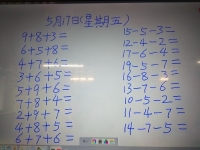 5月17日(星期五)
9+8+3=
6+5+8=
4+7+6=
3+6+5=
5+9+6=
7+8+4=
2+9+7=
4+8+5=
6+7+6=
15-5-3=
12-4-2=
17-6-4=
19-5-7=
16-8-3=
13-7-6=
10-5-2=
11-4-7=
14-7-5=